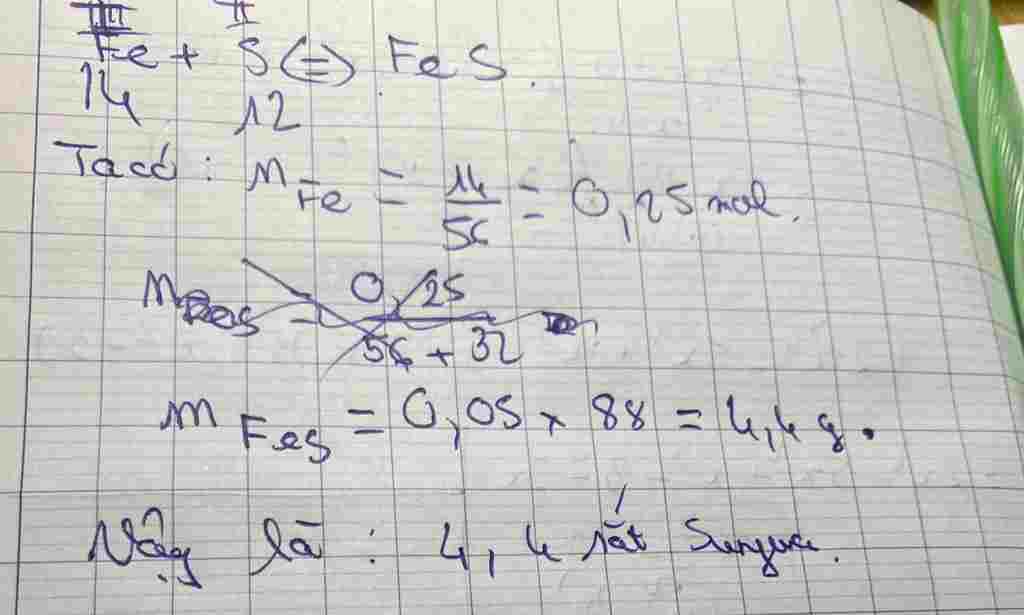 III II
Fe + S (=) FeS.
14 12
Ta có : n Fe = 14/56 = 0,25 mol.
m FeS = 0,25/56 + 32
m FeS = 0,05 x 88 = 4,4 g.
Vậy là : 4,4 sắt Sunfua.